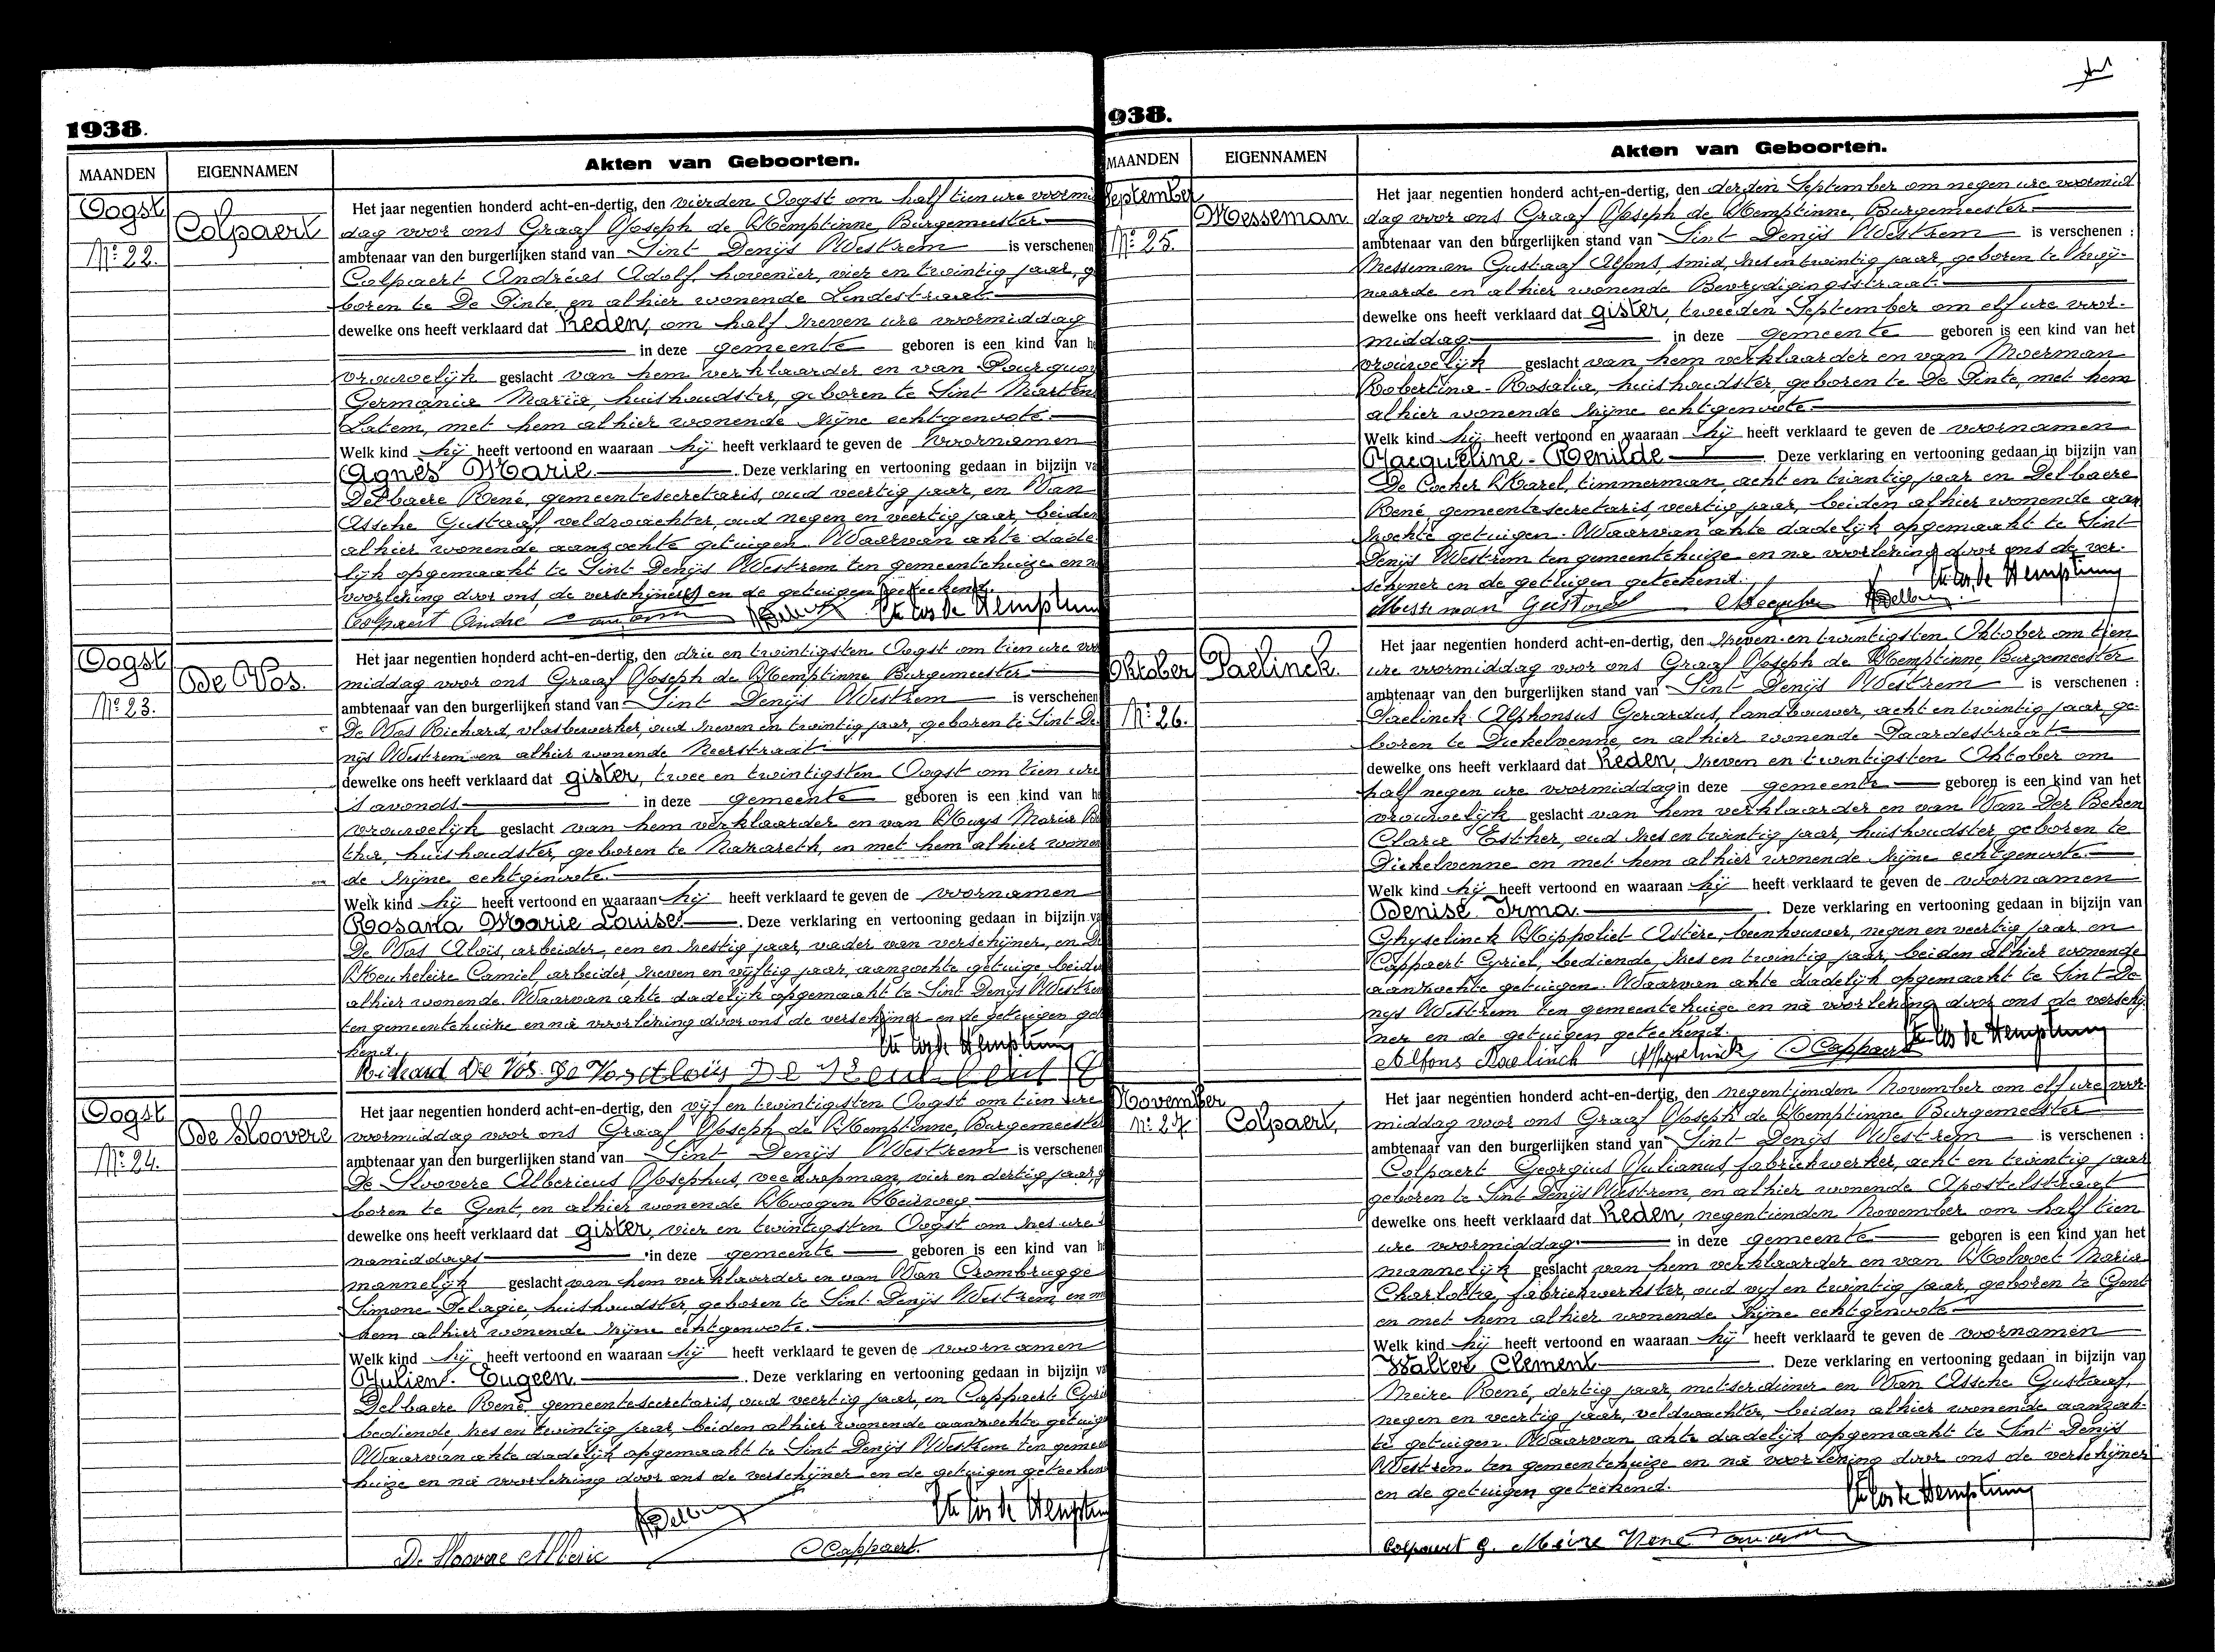 1938.
MAANDEN
EIGENNAMEN
Akten van Geboorten.
Oogst
Nº 22.
Colpaert
Het jaar negentien honderd acht-en-dertig, den vierden Oogst om half tien ure voormid
dag voor ons Graaf Joseph de Hemptinne, Burgemeester
ambtenaar van den burgerlijken stand van Sint Denijs Westrem is verschenen
Colpaert Andréas Adolf, hovenier, vier en twintig jaar, g
boren te De Pinte, en alhier wonende Lindestraat
dewelke ons heeft verklaard dat heden, om half zeven ure voormiddag
in deze gemeente geboren is een kind van h
vrouwelijk geslacht van hem verklaarder en van Pourquoy
Germania Maria, huishoudster, geboren te Sint Martens
Latem, met hem alhier wonende zijne echtgenoote.
Welk kind hij heeft vertoond en waaraan hij heeft verklaard te geven de voornamen
Agnes Marie. Deze verklaring en vertooning gedaan in bijzijn va
Delbaere René, gemeentesecretaris, oud veertig jaar, en Van
Assche Gustaaf, veldwachter, oud negen en veertig jaar, beiden
alhier wonende aanzochte getuigen. Waarvan akte dade
lijk opgemaakt te Sint Denijs Westrem ten gemeentehuize en n
voorlezing door ons, de verschijners en de getuigen geteekend.
Colpaert André
Oogst
Nº 23.
De Vos.
Het jaar negentien honderd acht-en-dertig, den drie en twintigsten Oogst om tien ure voor
middag voor ons Graaf Joseph de Hemptinne Burgemeester
ambtenaar van den burgerlijken stand van Sint Denijs Westrem is verschenen
De Vos Richard, vlasbewerker, oud zeven en twintig jaar, geboren te Sint De
nijs Westrem en alhier wonende Neerstraat
dewelke ons heeft verklaard dat gister, twee en twintigsten Oogst om tien ure
s avonds in deze gemeente geboren is een kind van h
vrouwelijk geslacht van hem verklaarder en van Huys Maria B
tha, huishoudster, geboren te Nazareth, en met hem alhier wonen
de zijne echtgenoote.
Welk kind hij heeft vertoond en waaraan hij heeft verklaard te geven de voornamen
Rosana Marie Louise. Deze verklaring en vertooning gedaan in bijzijn va
De Vos Aloïs, arbeider, een en zestig jaar, vader van verschijner, en D
Keukeleire Camiel, arbeider, zeven en vijftig jaar, aanzochte getuige beide
alhier wonende. Waarvan akte dadelijk opgemaakt te Sint Denijs Westrem
ten gemeentehuize en na voorlezing door ons de verschijner en de getuigen get
kend.
Richard De Vos. De Vos Aloïs
Oogst
Nº 24.
De Sloovere
Het jaar negentien honderd acht-en-dertig, den vijf en twintigsten Oogst om tien ure
voormiddag voor ons Graaf Joseph de Hemptinne, Burgemeester
ambtenaar van den burgerlijken stand van Sint Denijs Westrem is verschenen
De Sloovere Albericus Josephus, veekoopman, vier en dertig jaar, g
boren te Gent, en alhier wonende Hoogen Heirweg
dewelke ons heeft verklaard dat gister, vier en twintigsten Oogst om zes ure
namiddags in deze gemeente geboren is een kind van h
mannelijk geslacht van hem verklaarder en van Van Crombrugge
Simone Pelagie, huishoudster, geboren te Sint Denijs Westrem, en m
hem alhier wonende zijne echtgenoote.
Welk kind hij heeft vertoond en waaraan hij heeft verklaard te geven de voornamen
Julien. Eugeen. Deze verklaring en vertooning gedaan in bijzijn va
Delbaere René, gemeentesecretaris, oud veertig jaar, en Cappaert Cyri
bediende zes en twintig jaar, beiden alhier wonende aanzochte getuig
Waarvan akte dadelijk opgemaakt te Sint Denijs Westrem ten gemee
huize en na voorlezing door ons de verschijner en de getuigen geteeken
De Sloovere Alberic Cappaert.
938.
MAANDEN
EIGENNAMEN
Akten van Geboorten.
September
Nº 25.
Messeman
Het jaar negentien honderd acht-en-dertig, den derden September om negen ure voormid
dag voor ons Graaf Joseph de Hemptinne, Burgemeester
ambtenaar van den burgerlijken stand van Sint Denijs Westrem is verschenen :
Messeman Gustaaf Alfons, smid, zes en twintig jaar, geboren te Zwij-
naarde en alhier wonende Bevrijdigingsstraat
dewelke ons heeft verklaard dat gister, tweeden September om elf ure voor-
middag in deze gemeente geboren is een kind van het
vrouwelijk geslacht van hem verklaarder en van Moerman
Robertina-Rosalia, huishoudster, geboren te De Pinte, met hem
alhier wonende zijne echtgenoote
Welk kind hij heeft vertoond en waaraan hij heeft verklaard te geven de voornamen
Jacqueline-Renilde Deze verklaring en vertooning gedaan in bijzijn van
De Cocker Karel, timmerman, acht en twintig jaar en Delbaere
René gemeentesecretaris, veertig jaar, beiden alhier wonende aan
zochte getuigen. Waarvan akte dadelijk opgemaakt te Sint
Denijs Westrem ten gemeentehuize en na voorlezing door ons de ver-
schijner en de getuigen geteekend.
Messeman Gustaaf
Oktober
Nº 26.
Paelinck
Het jaar negentien honderd acht-en-dertig, den zeven-en twintigsten Oktober om tien
ure voormiddag voor ons Graaf Joseph de Hemptinne Burgemeester
ambtenaar van den burgerlijken stand van Sint Denijs Westrem is verschenen :
Paelinck Alphonsus Gerardus, landbouwer, acht en twintig jaar, ge-
boren te Dickelvenne, en alhier wonende Paardestraat
dewelke ons heeft verklaard dat heden, zeven en twintigsten Oktober om
half negen ure voormiddag in deze gemeente geboren is een kind van het
vrouwelijk geslacht van hem verklaarder en van Van Der Beken
Clara Esther, oud zes en twintig jaar, huishoudster, geboren te
Dickelvenne en met hem alhier wonende zijne echtgenoote.
Welk kind hij heeft vertoond en waaraan hij heeft verklaard te geven de voornamen
Denise Irma. Deze verklaring en vertooning gedaan in bijzijn van
Ghyselinck Hippoliet Astère, beenhouwer, negen en veertig jaar en
Cappaert Cyriel, bediende, zes en twintig jaar, beiden alhier wonende
aanzochte getuigen. Waarvan akte dadelijk opgemaakt te Sint De
nijs Westrem ten gemeentehuize en na voorlezing door ons de verschij
ner en de getuigen geteekend.
Alfons Paelinck Cappaert
November
Nº 27
Colpaert,
Het jaar negentien honderd acht-en-dertig, den negentienden November om elf ure voor-
middag voor ons Graaf Joseph de Hemptinne Burgemeester
ambtenaar van den burgerlijken stand van Sint Denijs Westrem is verschenen :
Colpaert Georgius Julianus, fabriekwerker, acht en twintig jaar
geboren te Sint Denijs Westrem, en alhier wonende Apostelstraat
dewelke ons heeft verklaard dat heden, negentienden November om half tien
ure voormiddag in deze gemeente geboren is een kind van het
mannelijk geslacht van hem verklaarder en van Holvoet Maria
Charlotta, fabriekwerkster, oud vijf en twintig jaar, geboren te Gent
en met hem alhier wonende zijne echtgenoote
Welk kind hij heeft vertoond en waaraan hij heeft verklaard te geven de voornamen
Walter Clement Deze verklaring en vertooning gedaan in bijzijn van
Meire René, dertig jaar, metserdiener en Van Assche Gustaaf,
negen en veertig jaar, veldwachter, beiden alhier wonende aanzoch-
te getuigen. Waarvan akte dadelijk opgemaakt te Sint Denijs
Westrem ten gemeentehuize en na voorlezing door ons de verschijner
en de getuigen geteekend.
Colpaert G. Meire René